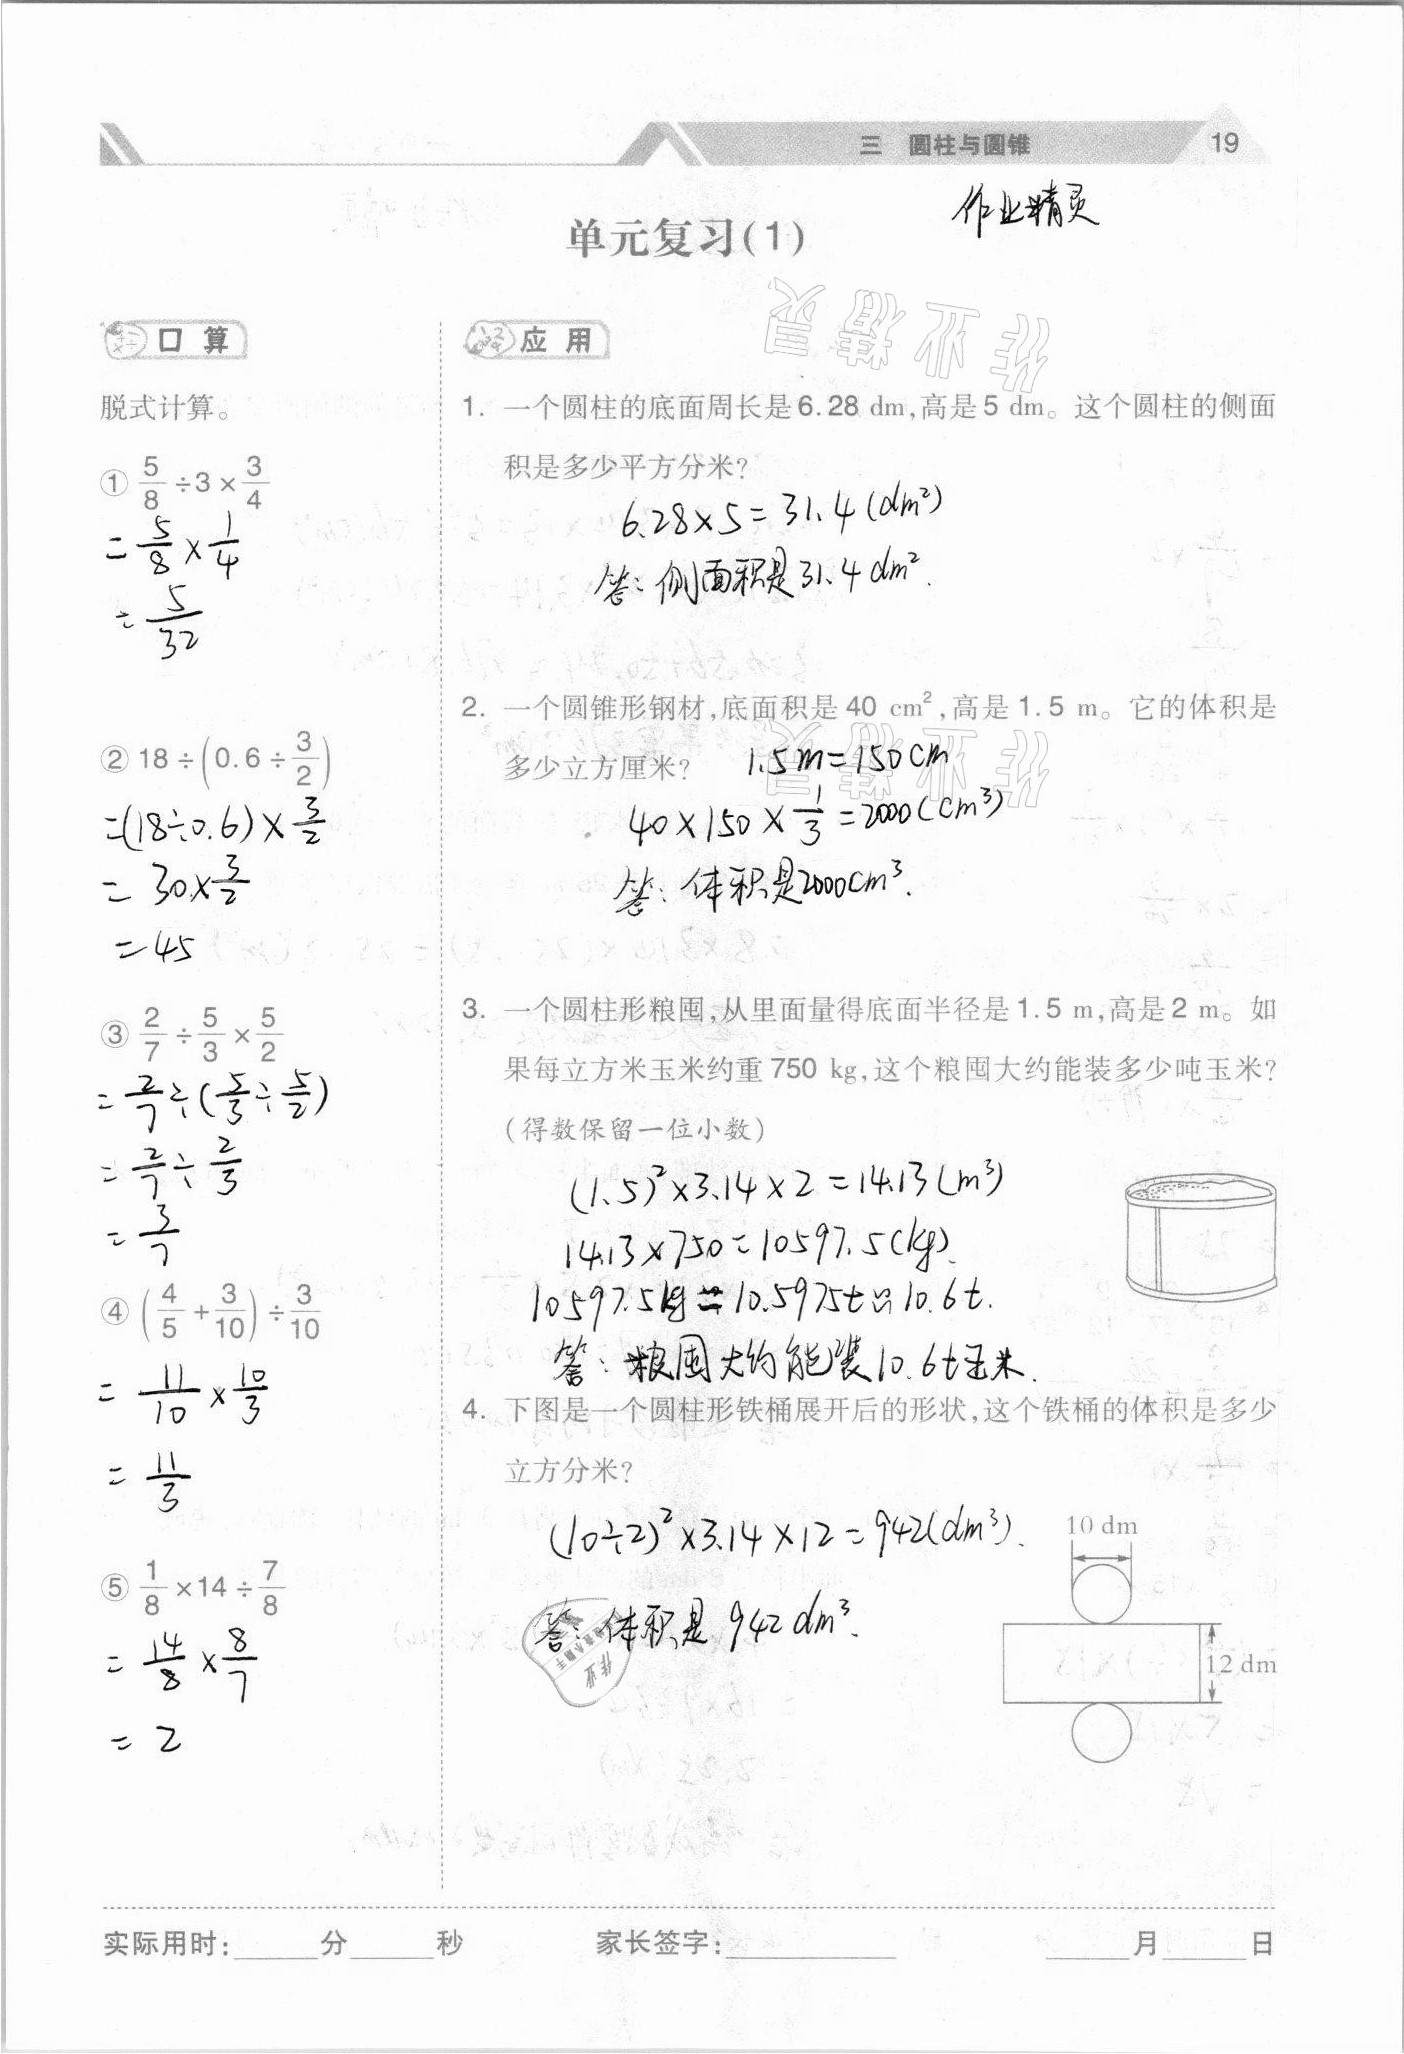 三 圆柱与圆锥 19
作业精灵
单元复习(1)
口算
脱式计算。
① 5/8 ÷3× 3/4
= 5/8 × 1/4
= 5/32
② 18÷(0.6÷ 3/2)
=(18÷0.6)× 3/2
= 30× 3/2
= 45
③ 2/7 ÷ 5/3 × 5/2
= 2/7 ÷( 5/3 ÷ 5/2 )
= 2/7 ÷ 2/3
= 3/7
④ (4/5 + 3/10) ÷ 3/10
= 11/10 × 10/3
= 11/3
⑤ 1/8 ×14÷ 7/8
= 14/8 × 8/7
= 2
应用
1. 一个圆柱的底面周长是6.28 dm,高是5 dm。这个圆柱的侧面
积是多少平方分米?
6.28×5=31.4(dm²)
答:侧面积是31.4dm².
2. 一个圆锥形钢材,底面积是40 cm²,高是1.5 m。它的体积是
多少立方厘米?
1.5m=150cm
40×150× 1/3 =2000(cm³)
答:体积是2000cm³.
3. 一个圆柱形粮囤,从里面量得底面半径是1.5 m,高是2 m。如
果每立方米玉米约重750 kg,这个粮囤大约能装多少吨玉米?
(得数保留一位小数)
(1.5)²×3.14×2=14.13(m³)
14.13×750=10597.5(kg).
10597.5kg=10.5975t≈10.6t.
答:粮囤大约能装10.6t玉米.
4. 下图是一个圆柱形铁桶展开后的形状,这个铁桶的体积是多少
立方分米?
(10÷2)²×3.14×12=942(dm³).
答:体积是942dm³.
10 dm
12 dm
作业精灵
作业精灵
实际用时:____分____秒 家长签字:________ ____月____日